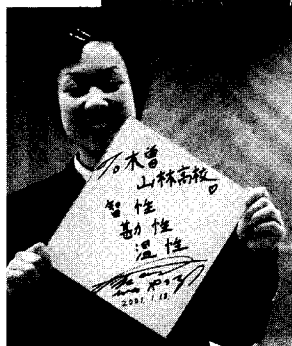 To 木曽
山林高校
智性
勘性
温性
2001.1.18.